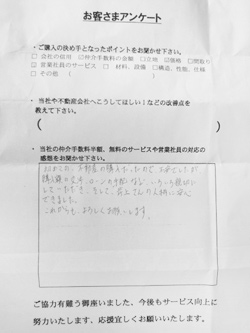 お客さまアンケート
・ご購入の決め手となったポイントをお聞かせ下さい。
□ 会社の信用 仲介手数料の金額 □立地 価格 □間取り
□ 営業社員のサービス □ 材料、設備 □構造、性能、仕様
□ その他 (
・当社や不動産会社へこうしてほしい!などの改善点を
教えて下さい。
( )
・当社の仲介手数料半額、無料のサービスや営業社員の対応の
感想をお聞かせ下さい。
初めての不動産の購入だったので、不安でしたが
購入後の
していただき、
できました。
これからも、よろしくお願いします。
ご協力有難う御座いました、今後もサービス向上に
努力いたします、応援宜しくお願いします。